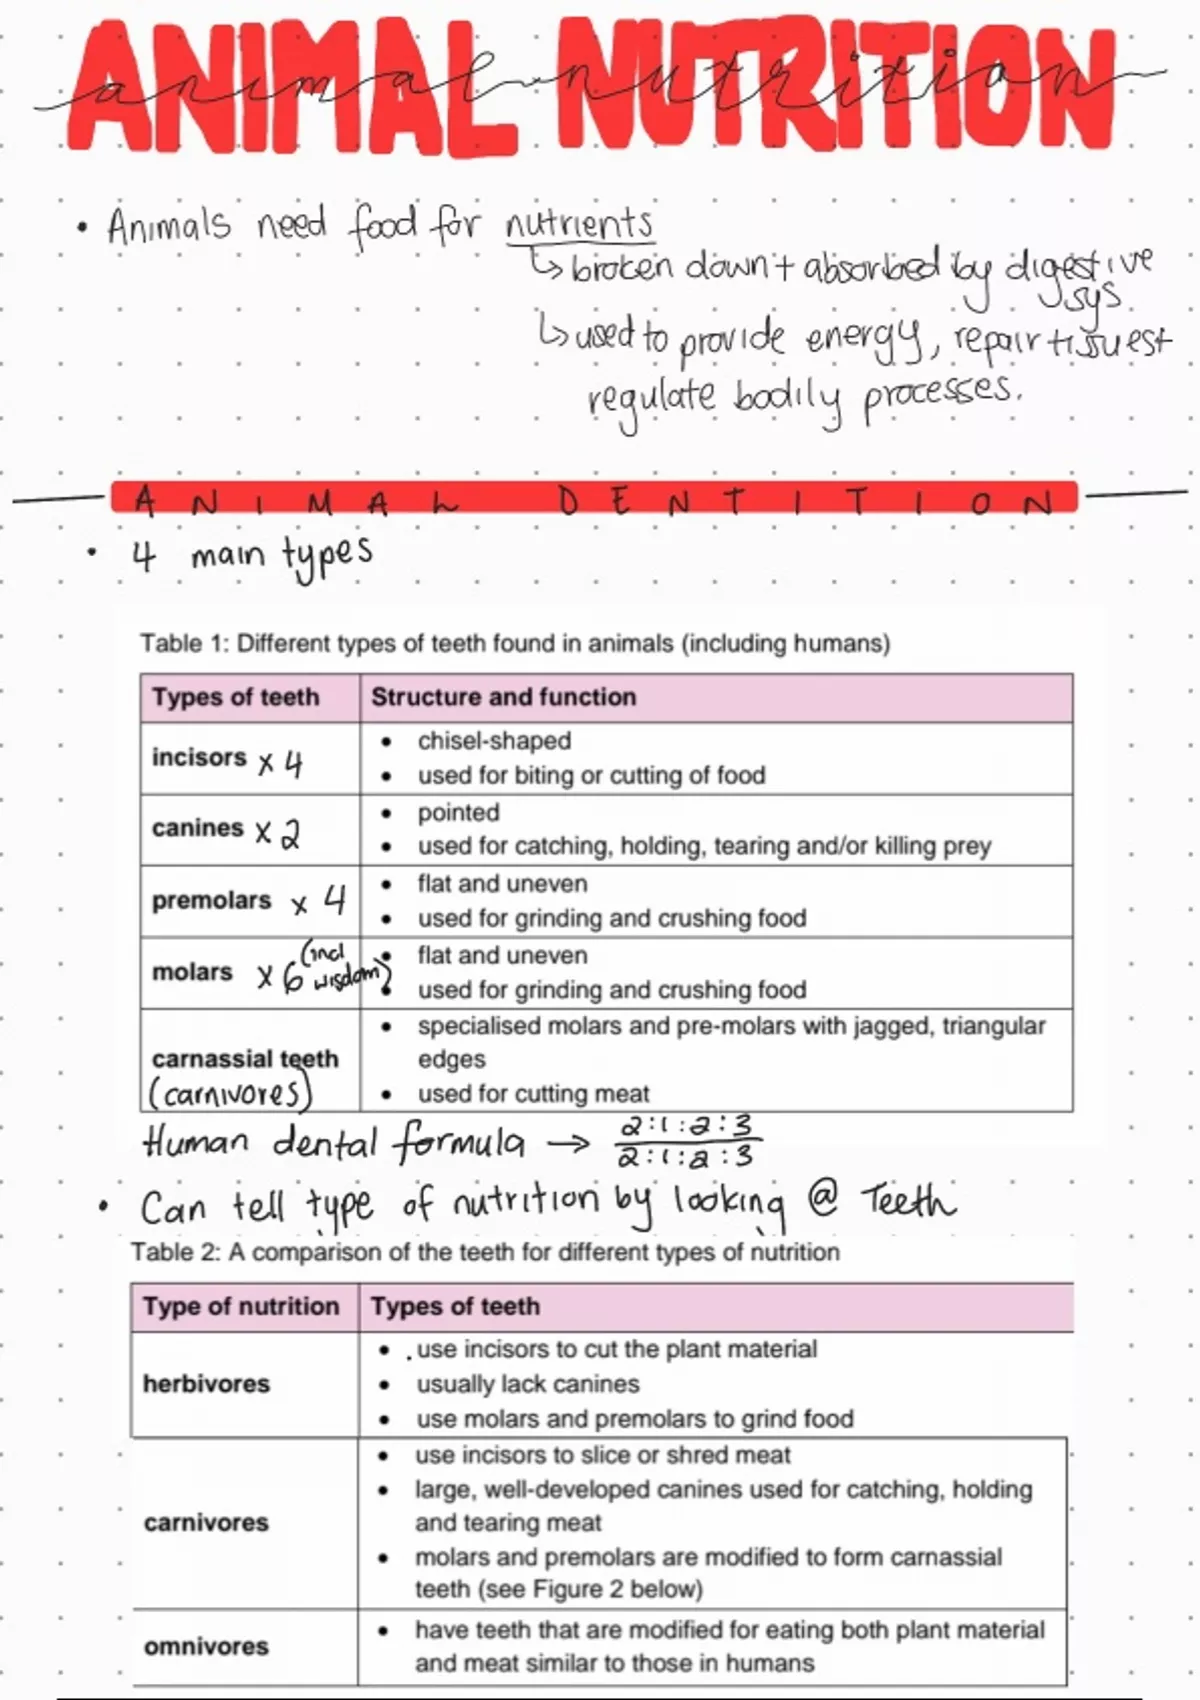 ANIMAL NUTRITION
animal nutrition
• Animals need food for nutrients
↳ broken down + absorbed by digestive
sys.
↳ used to provide energy, repair tissues +
regulate bodily processes.
ANIMAL DENTITION
• 4 main types
Table 1: Different types of teeth found in animals (including humans)
Types of teeth Structure and function
incisors x 4
• chisel-shaped
• used for biting or cutting of food
canines x 2
• pointed
• used for catching, holding, tearing and/or killing prey
premolars x 4
• flat and uneven
• used for grinding and crushing food
molars x 6 (incl
wisdom)
• flat and uneven
• used for grinding and crushing food
carnassial teeth
(carnivores)
• specialised molars and pre-molars with jagged, triangular
edges
• used for cutting meat
Human dental formula → 2:1:2:3
2:1:2:3
• Can tell type of nutrition by looking @ Teeth
Table 2: A comparison of the teeth for different types of nutrition
Type of nutrition Types of teeth
herbivores
• use incisors to cut the plant material
• usually lack canines
• use molars and premolars to grind food
carnivores
• use incisors to slice or shred meat
• large, well-developed canines used for catching, holding
and tearing meat
• molars and premolars are modified to form carnassial
teeth (see Figure 2 below)
omnivores
• have teeth that are modified for eating both plant material
and meat similar to those in humans